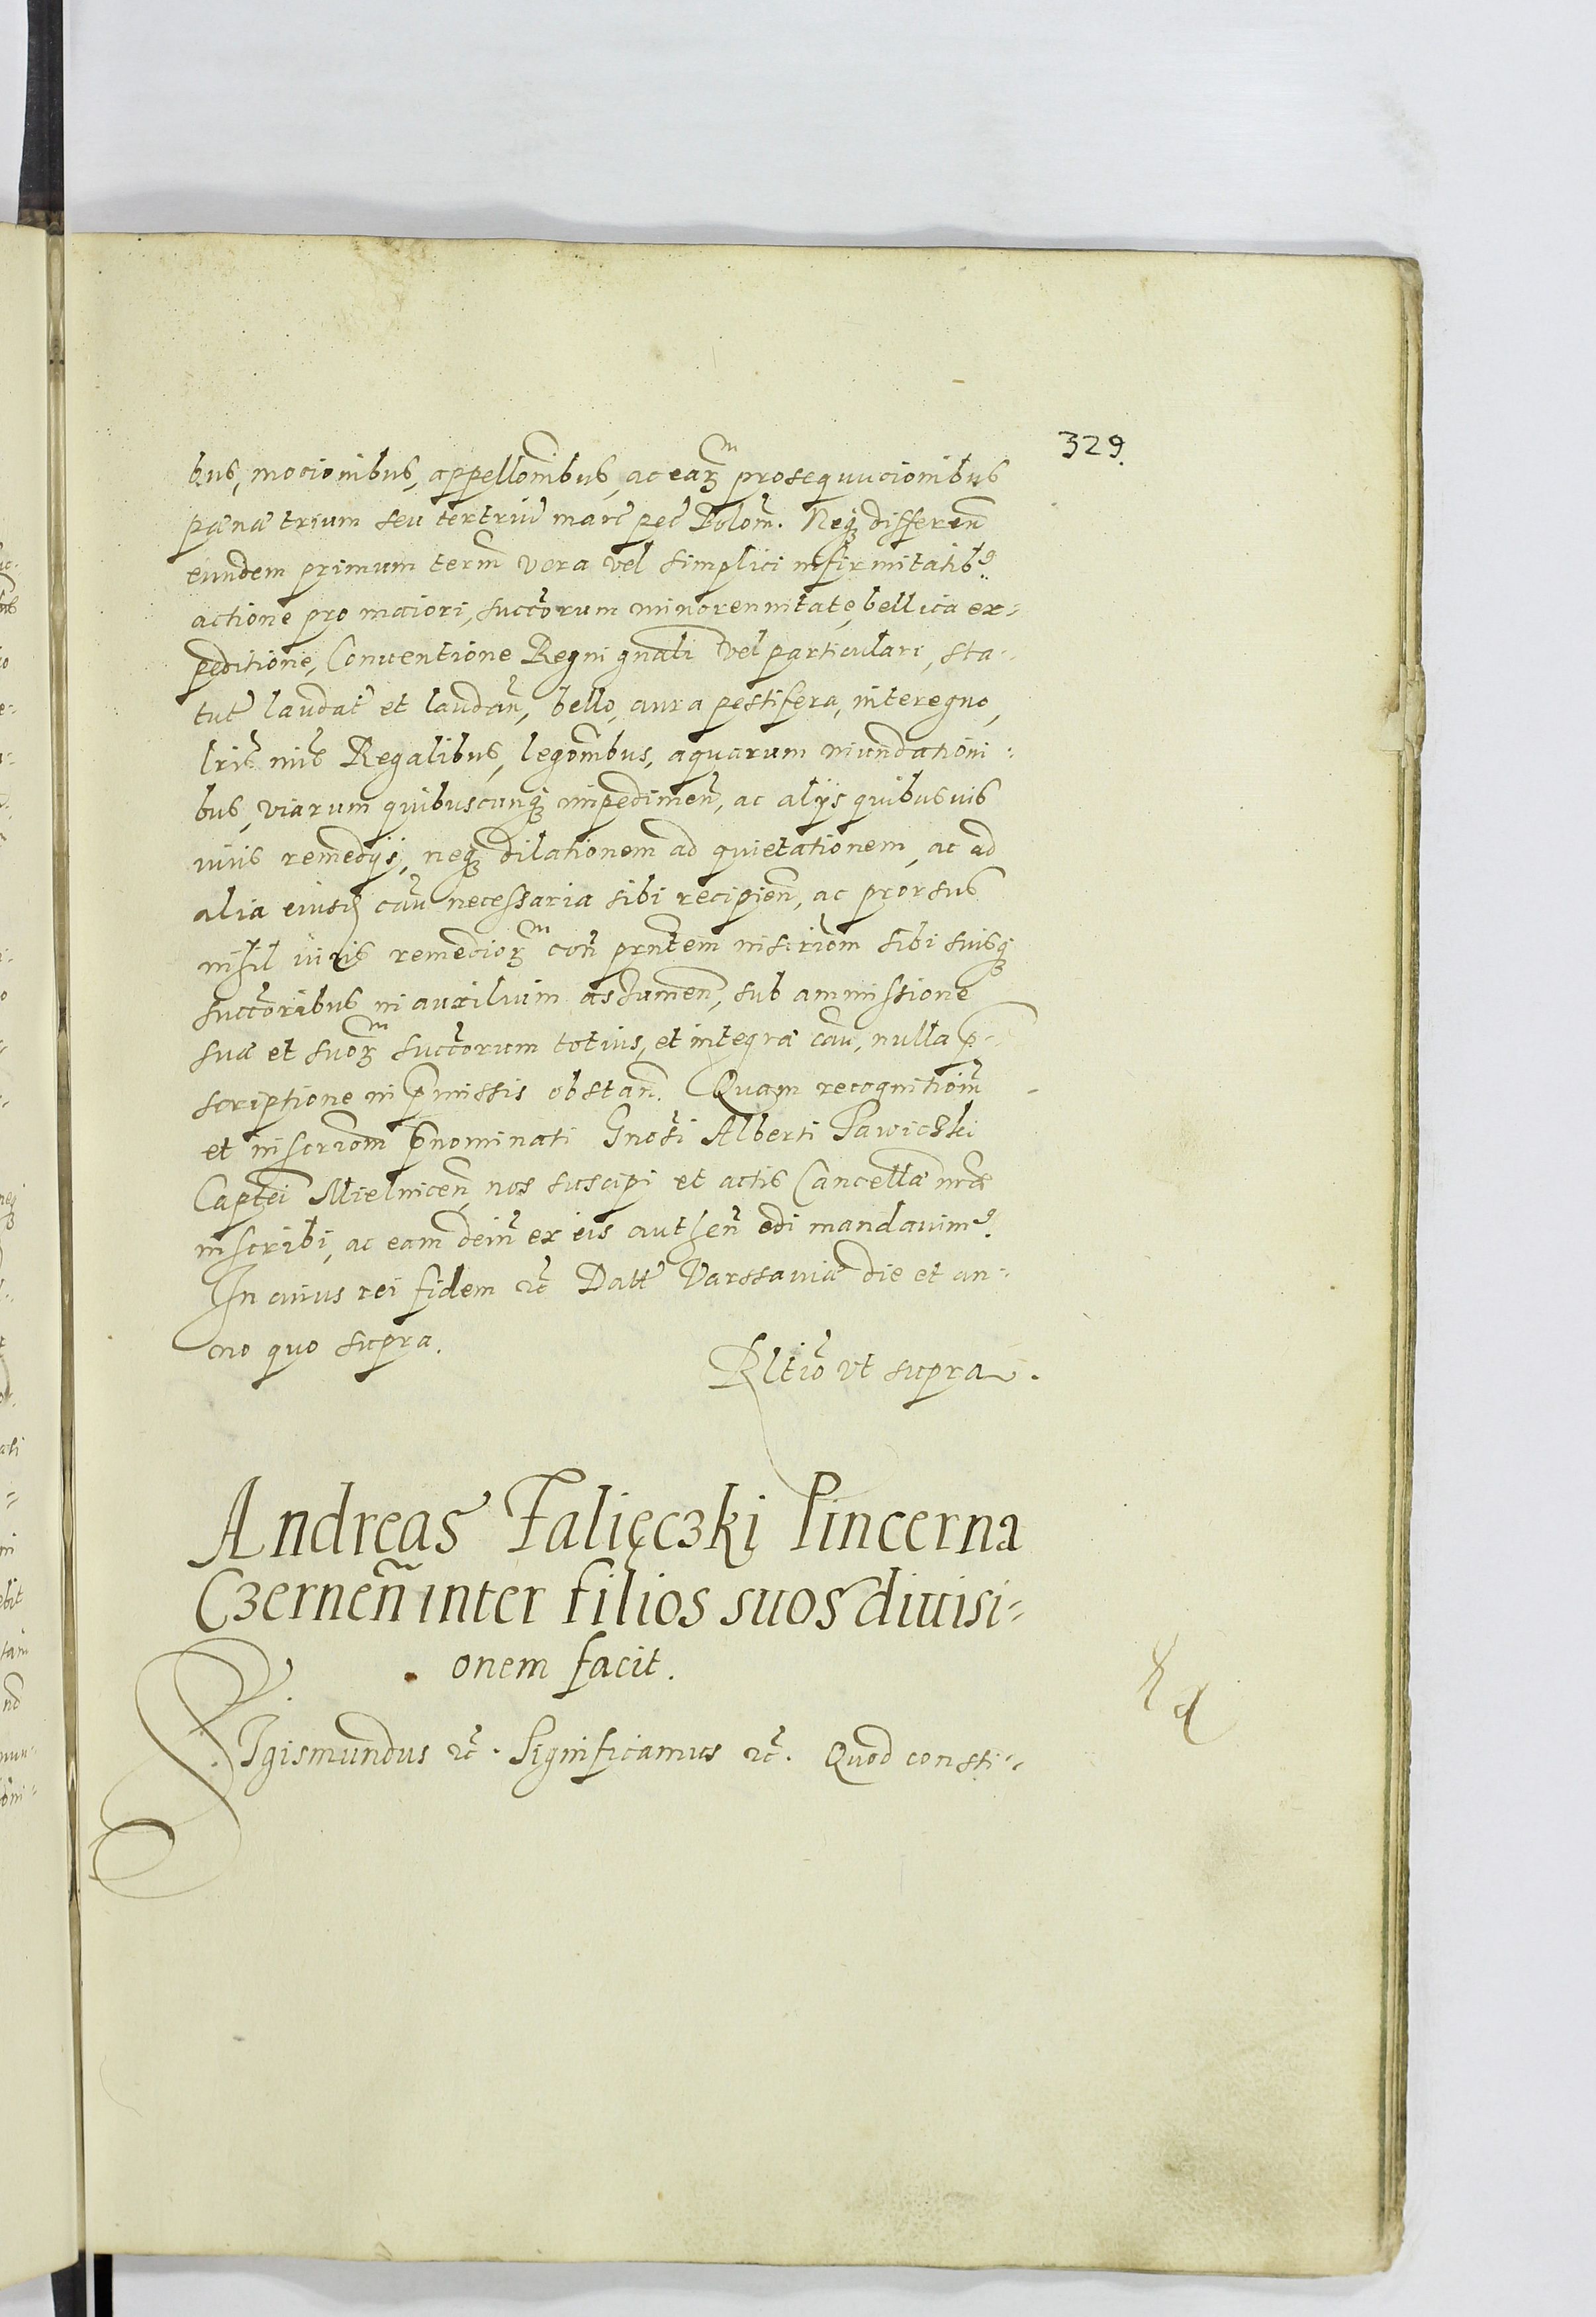 329.
bus, mocionibus, appellõnibus, ac earꝫ prosequucionibus
pœnæ trium seu tertriũ marc pec Polon̄. Neqꝫ differen̄
eundem primum term̄ vera vel simplici infirmitatib9
actione pro maiori, succorum minorennitate, bellica ex-
peditione, Conventione Regni gnali vel particulari, sta-
tut laudat et laudan̄, bello, aura pestifera, interegno,
lris nris Regalibus, legõnibus, aquarum inundationi-
bus, viarum quibuscunqꝫ impedimen̄, ac alijs quibusuis
iuris remedijs, neqꝫ dilationem ad quietationem, ac ad
alia eiusd cau necessaria sibi recipien̄, ac prorsus
nihil iuris remediorꝫ con̄ prntem inscriõm sibi suisqꝫ
succoribus in auxilium assumen̄, sub ammissione
suæ et suorꝫ succorum totius, et integræ cau, nulla p-
scriptione in p̄missis obstan̄. Quam recognitiõm
et inscriõm p̄nominati Gnosi Alberti Sawiczki
Captei Mielnicen̄ nos suscipi et actis Cancellæ nræ
inscribi, ac eam dein̄ ex eis authen̄ edi mandauim9.
In cuius rei fidem ꝛc Datt Varssauiæ die et an-
no quo supra.
Rltio vt supra.
Andreas Falięczki Pincerna
Czernen̄ inter filios suos diuisi-
onem facit.
SIgismundus ꝛc. Significamus ꝛc. Quod consti-